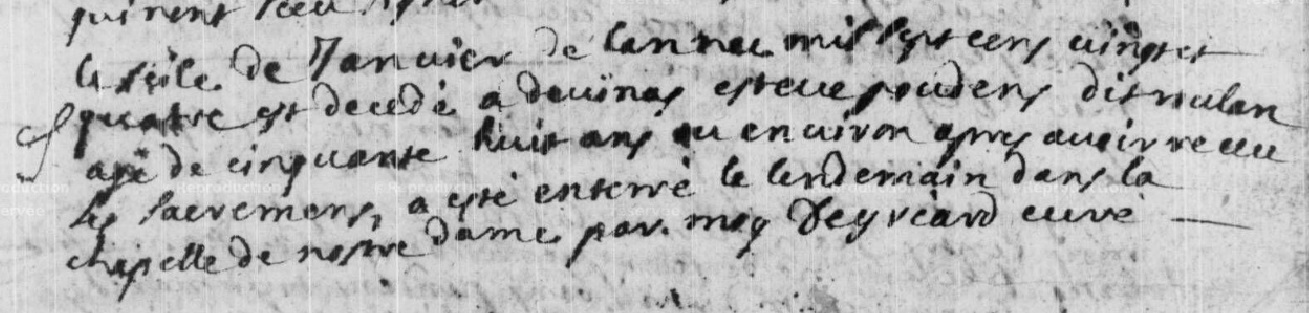 le seise de Janvier de lannee mil sept cens vingt et
quatre est decedé a devinas esteve poudens dit roulan
agé de cinquante huit ans ou environ apres avoir receu
les sacremens, a esté enterré le lendemain dans la
chapelle de nostre dame par moy Veyreard curé